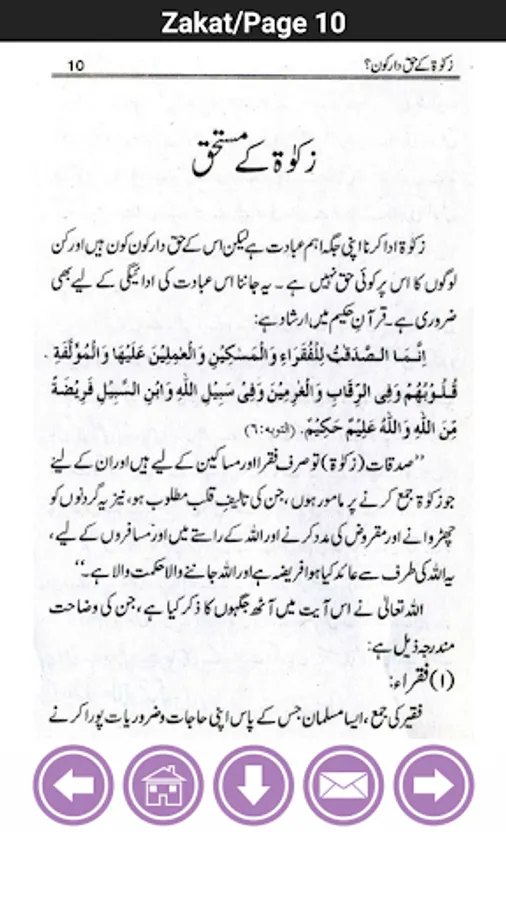 Zakat/Page 10
زکوٰۃ کے حق دار کون؟ 10
زکوٰۃ کے مستحق
زکوٰۃ ادا کرنا اپنی جگہ اہم عبادت ہے لیکن اس کے حق دار کون کون ہیں اور کن
لوگوں کا اس پر کوئی حق نہیں ہے۔ یہ جاننا اس عبادت کی ادائیگی کے لیے بھی
ضروری ہے۔ قرآنِ حکیم میں ارشاد ہے:
اِنَّمَا الصَّدَقٰتُ لِلْفُقَرَاءِ وَالْمَسٰكِيْنِ وَالْعٰمِلِيْنَ عَلَيْهَا وَالْمُؤَلَّفَةِ
قُلُوْبُهُمْ وَفِى الرِّقَابِ وَالْغٰرِمِيْنَ وَفِىْ سَبِيْلِ اللّٰهِ وَابْنِ السَّبِيْلِ فَرِيْضَةً
مِّنَ اللّٰهِ وَاللّٰهُ عَلِيْمٌ حَكِيْمٌ۔ (التوبہ:٦)
”صدقات (زکوٰۃ) تو صرف فقرا اور مساکین کے لیے ہیں اور ان کے لیئے
جو زکوٰۃ جمع کرنے پر مامور ہوں، جن کی تالیفِ قلب مطلوب ہو، نیز یہ گردنوں کو
چھڑوانے اور مقروض کی مدد کرنے اور اللہ کے راستے میں اور مسافروں کے لیے،
یہ اللہ کی طرف سے عائد کیا ہوا فریضہ ہے اور اللہ جاننے والا حکمت والا ہے۔“
اللہ تعالیٰ نے اس آیت میں آٹھ جگہوں کا ذکر کیا ہے، جن کی وضاحت
مندرجہ ذیل ہے:
(۱) فقراء:
فقیر کی جمع، ایسا مسلمان جس کے پاس اپنی حاجات و ضروریات پورا کرنے